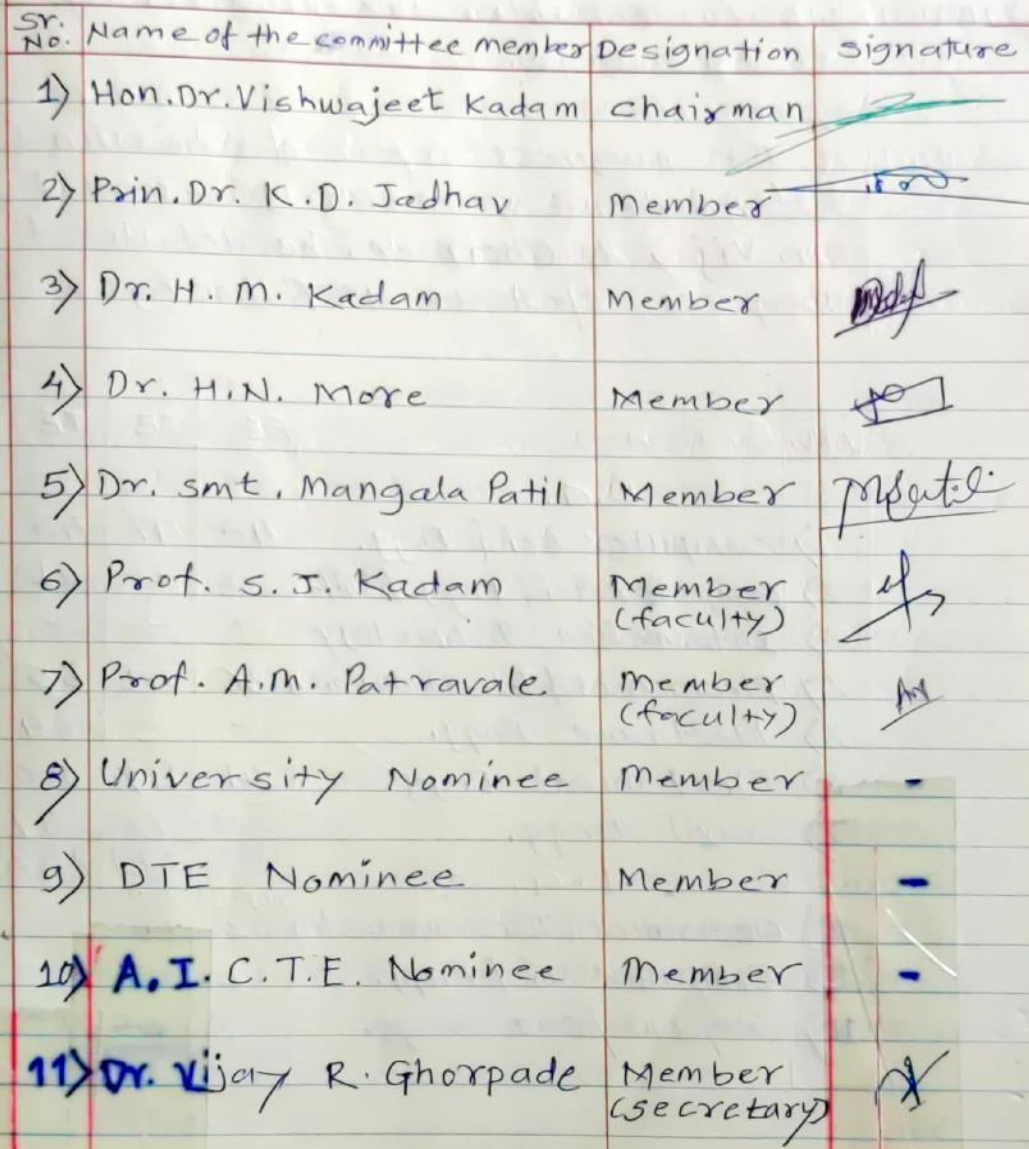 Sr. No. Name of the committee member Designation signature
1) Hon. Dr. Vishwajeet Kadam chairman
2) Prin. Dr. K. D. Jadhav Member
3) Dr. H. M. Kadam Member
4) Dr. H. N. More Member
5) Dr. smt. Mangala Patil Member
6) Prof. S. J. Kadam Member
(faculty)
7) Prof. A. M. Patravale Member
(faculty)
8) University Nominee Member -
9) DTE Nominee Member -
10) A. I. C. T. E. Nominee Member -
11) Dr. Vijay R. Ghorpade Member
(secretary)